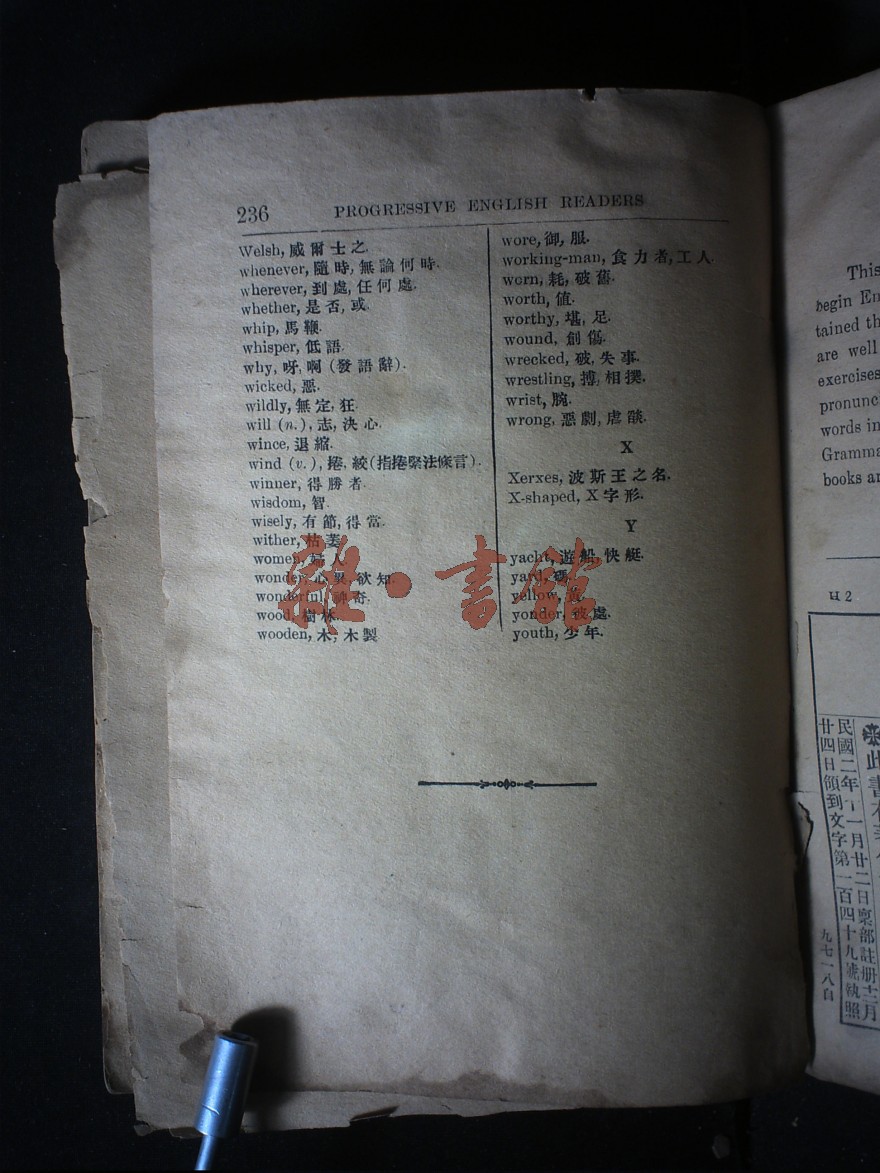 236 PROGRESSIVE ENGLISH READERS
Welsh, 威爾士之.
whenever, 隨時, 無論何時.
wherever, 到處, 任何處.
whether, 是否, 或.
whip, 馬鞭.
whisper, 低語.
why, 呀, 啊 (發語辭).
wicked, 惡.
wildly, 無定, 狂.
will (n.), 志, 決心.
wince, 退縮.
wind (v.), 捲, 絞 (指捲緊法條言).
winner, 得勝者.
wisdom, 智.
wisely, 有節, 得當.
wither, 枯萎.
women, 婦人.
wonder, 心異欲知.
wonderful, 神奇.
wood, 樹林.
wooden, 木, 木製
wore, 御, 服.
working-man, 食力者, 工人.
worn, 耗, 破舊.
worth, 值.
worthy, 堪, 足.
wound, 創傷.
wrecked, 破, 失事.
wrestling, 搏, 相撲.
wrist, 腕.
wrong, 惡劇, 虐
X
Xerxes, 波斯王之名.
X-shaped, X字形.
Y
yacht, 遊船, 快艇.
yard, 碼.
yellow, 黃.
yonder, 彼處.
youth, 少年.
雜·書館
This
begin En
tained th
are well
exercises
pronunc
words in
Gramma
books an
此書
民國二年十一月廿二日稟部註册十二月
廿四日領到文字第一百四十九號執照